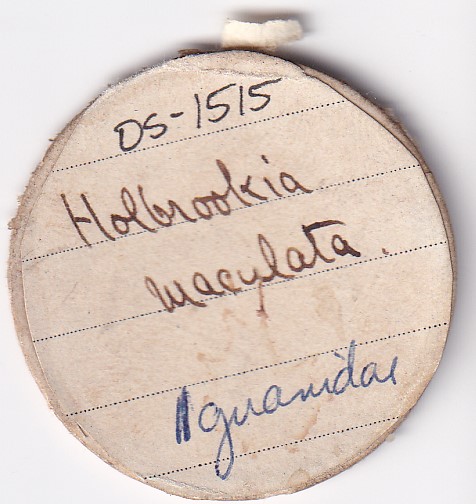 DS-1515
Holbrookia
maculata.
Iguanidae